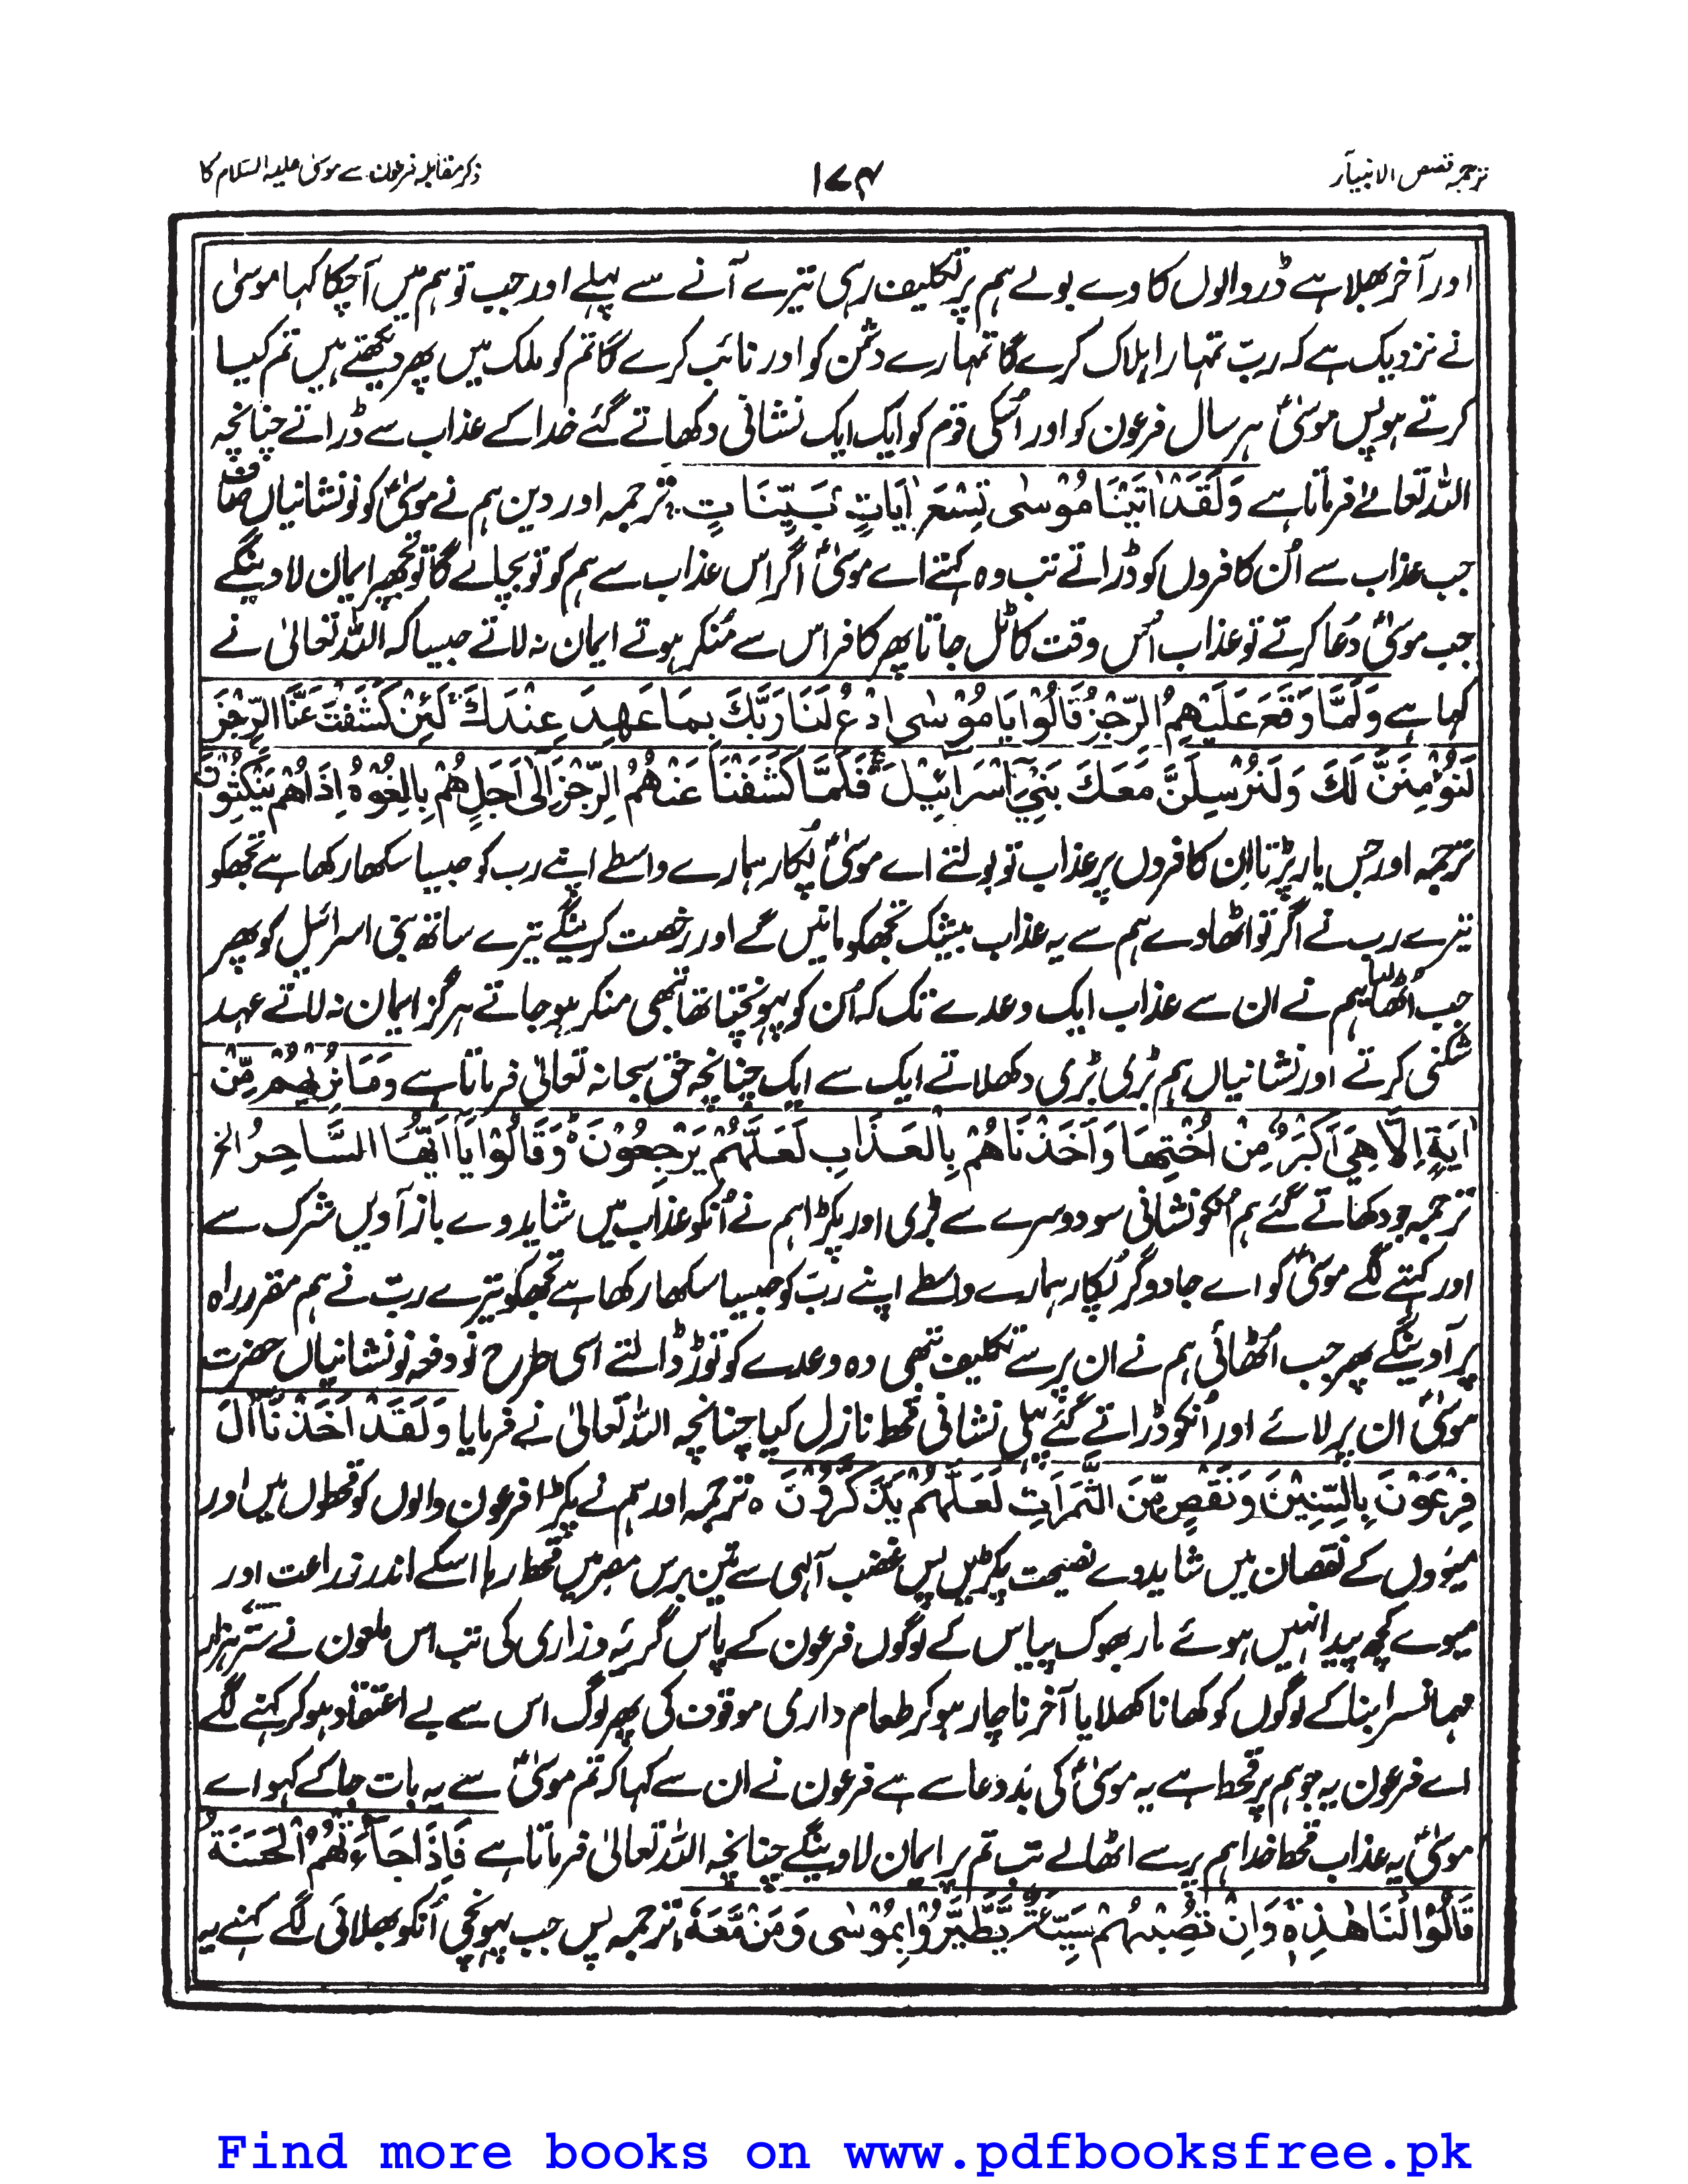 ترجمہ قصص الانبیآر
۱۷۴
ذکر مقابلہ فرعون سے موسیٰ علیہ السّلام کا
اور آخر بھلا ہے ڈر والوں کا وے بولے ہم پر تکلیف رہی تیرے آنے سے پہلے اور جب تو ہم میں آچکا کہا موسیٰ
نے نزدیک ہے کہ ربّ تمہارا ہلاک کرے گا تمہارے دشمن کو اور نائب کرے گا تم کو ملک میں پھر دیکھتے ہیں تم کیسا
کرتے ہو پس موسیٰؑ ہر سال فرعون کو اور اُسکی قوم کو ایک ایک نشانی دکھاتے گئے خدا کے عذاب سے ڈراتے چنانچہ
اللہ تعالےٰ فرماتا ہے وَلَقَدْ اٰتَيْنَا مُوْسٰى تِسْعَ اٰيَاتٍ بَيِّنَاتٍ ترجمہ اور دین ہم نے موسیٰؑ کو نو نشانیاں صاف
جب عذاب سے اُن کافروں کو ڈراتے تب وہ کہتے اے موسیٰؑ اگر اس عذاب سے ہم کو تو بچالے گا تو تجھپر ایمان لاوینگے
جب موسیٰؑ دُعا کرتے تو عذاب اُس وقت کا ٹل جاتا پھر کافر اس سے مُنکر ہوتے ایمان نہ لاتے جیسا کہ اللہ تعالیٰ نے
کہا ہے وَلَمَّا وَقَعَ عَلَيْهِمُ الرِّجْزُ قَالُوْا يَا مُوْسٰى ادْعُ لَنَا رَبَّكَ بِمَا عَهِدَ عِنْدَكَ لَئِنْ كَشَفْتَ عَنَّا الرِّجْزَ
لَنُؤْمِنَنَّ لَكَ وَلَنُرْسِلَنَّ مَعَكَ بَنِيْٓ اِسْرَآئِيْلَ فَلَمَّا كَشَفْنَا عَنْهُمُ الرِّجْزَ اِلٰى اَجَلٍ هُمْ بَالِغُوْهُ اِذَا هُمْ يَنْكُثُوْنَ
ترجمہ اور جس بار پڑتا اِن کافروں پر عذاب تو بولتے اے موسیٰؑ پُکار ہمارے واسطے اپنے رب کو جیسا سکھا رکھا ہے تجھکو
تیرے رب نے اگر تو اٹھا دے ہم سے یہ عذاب بیشک تجھکو مانیں گے اور رخصت کرینگے تیرے ساتھ بنی اسرائیل کو پھر
جب اُٹھا لیا ہم نے ان سے عذاب ایک وعدے تک کہ اُن کو پہونچتا تھا تبھی منکر ہو جاتے ہرگز ایمان نہ لاتے عہد
شکنی کرتے اور نشانیاں ہم بڑی بڑی دکھلاتے ایک سے ایک چنانچہ حق سبحانہ تعالیٰ فرماتا ہے وَمَا نُرِيْهِمْ مِّنْ
اٰيَةٍ اِلَّا هِيَ اَكْبَرُ مِنْ اُخْتِهَا وَاَخَذْنَاهُمْ بِالْعَذَابِ لَعَلَّهُمْ يَرْجِعُوْنَ وَقَالُوْا يَا اَيُّهَا السَّاحِرُ الخ
ترجمہ جو دکھاتے گئے ہم اُنکو نشانی سو دوسرے سے بڑی اور پکڑا ہم نے اُنکو عذاب میں شاید وے باز آویں شرک سے
اور کہتے لگے موسیٰؑ کو اے جادوگر پُکار ہمارے واسطے اپنے ربّ کو جیسا سکھا رکھا ہے تجھکو تیرے ربّ نے ہم مقرر راہ
پر آوینگے پھر جب اُٹھائی ہم نے ان پر سے تکلیف تبھی وہ وعدے کو توڑ ڈالتے اسی طرح نو دفعہ نو نشانیاں حضرت
موسیٰؑ ان پر لائے اور اُنکو ڈراتے گئے پہلی نشانی قحط نازل کیا چنانچہ اللہ تعالیٰ نے فرمایا وَلَقَدْ اَخَذْنَا اٰلَ
فِرْعَوْنَ بِالسِّنِيْنَ وَنَقْصٍ مِّنَ الثَّمَرَاتِ لَعَلَّهُمْ يَذَّكَّرُوْنَ ہ ترجمہ اور ہم نے پکڑا فرعون والوں کو قحطوں میں اور
میووں کے نقصان میں شاید وے نصیحت پکڑیں پس غضب آلہی سے تین برس مصر میں قحط رہا اسکے اندر زراعت اور
میوے کچھ پیدا نہیں ہوئے مار بھوک پیاس کے لوگوں فرعون کے پاس گریہ وزاری کی تب اس ملعون نے ستّر ہزار
مہمانسرا بنا کے لوگوں کو کھانا کھلایا آخر ناچار ہو کر طعام داری موقوف کی پھر لوگ اس سے بے اعتقاد ہو کر کہنے لگے
اے فرعون یہ جو ہم پر قحط ہے یہ موسیٰؑ کی بددعا سے ہے فرعون نے ان سے کہا کہ تم موسیٰؑ سے یہ بات جا کے کہو اے
موسیٰؑ یہ عذاب قحط خدا ہم پر سے اٹھالے تب تم پر ایمان لاوینگے چنانچہ اللہ تعالیٰ فرماتا ہے فَاِذَا جَآءَتْهُمُ الْحَسَنَةُ
قَالُوْا لَنَا هٰذِهٖ وَاِنْ تُصِبْهُمْ سَيِّئَةٌ يَّطَّيَّرُوْا بِمُوْسٰى وَمَنْ مَّعَهٗ ترجمہ پس جب پہونچی اُنکو بھلائی لگے کہنے یہ
Find more books on www.pdfbooksfree.pk